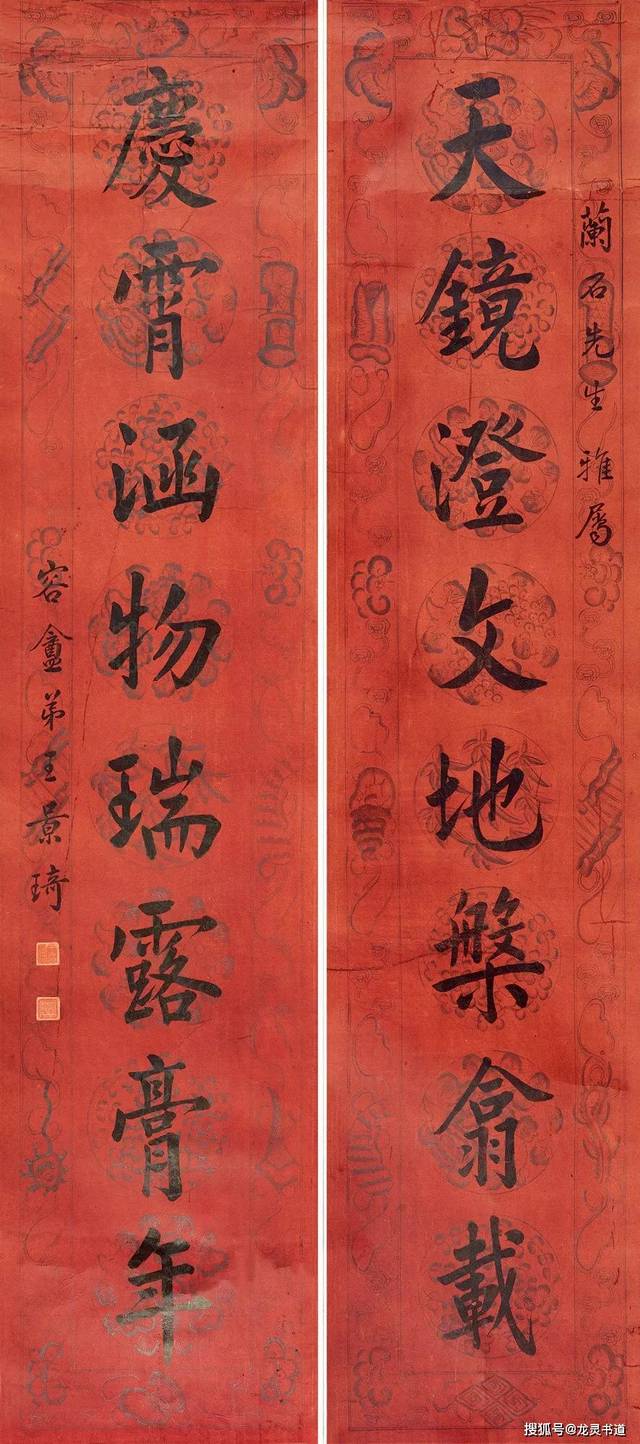 蘭石先生雅屬
天鏡澄文地槃翕載
慶霄涵物瑞露膏年
容盦弟王景琦
搜狐号@龙灵书道